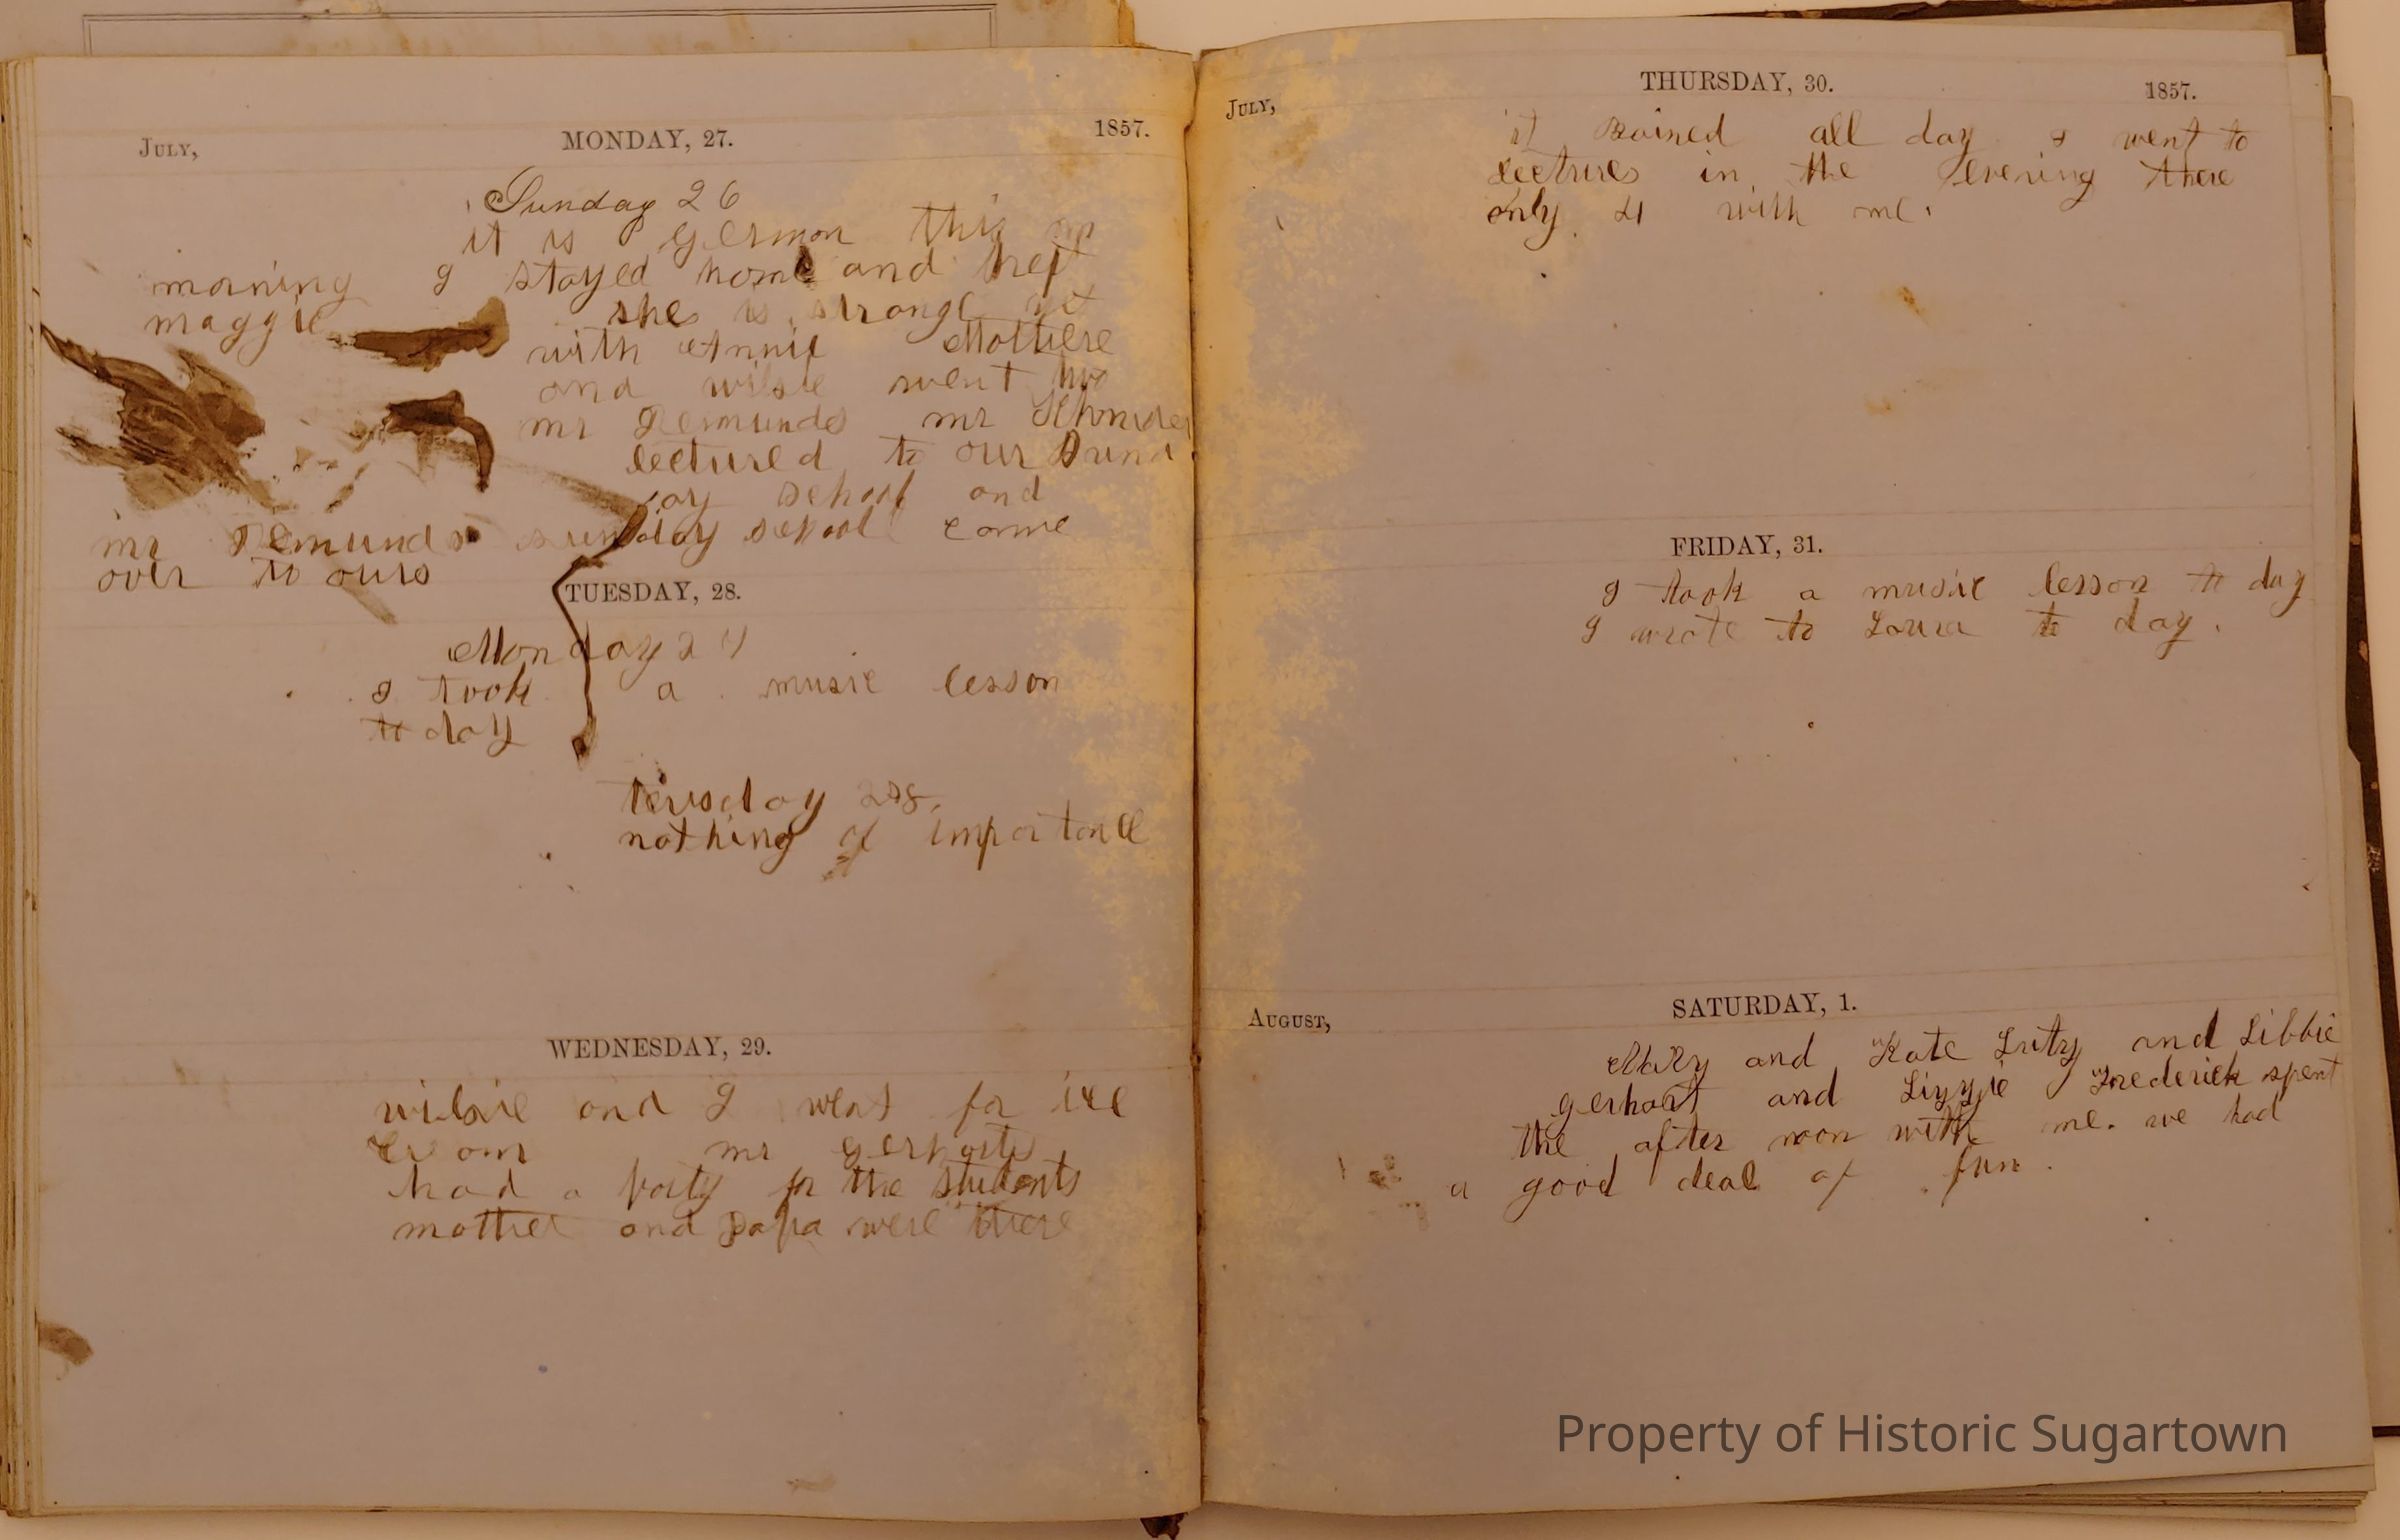 July,
MONDAY, 27.
1857.
Sunday 26
it is german this
morning I stayed home and kept
maggie she is strange yet
with Annie Mottiere
and wilsie went
mr Remunds mr
lectured to our Sund
ay school and
mr Remunds sunday school came
over to ours
TUESDAY, 28.
Monday 27
I took a music lesson
to day
teusday 28.
nothing of importance
WEDNESDAY, 29.
wilsie and I went for ice
cream mr gerharts
had a party for the students
mother and papa were there
July,
THURSDAY, 30.
1857.
it Rained all day I went to
lectures in the evening there
only 21 with me.
FRIDAY, 31.
I took a music lesson to day
I wrote to Laura to day.
August,
SATURDAY, 1.
MaRy and Kate Fritzy and Libbie
gerhart and Lizzie Frederick spent
the after noon with me. we had
a good deal of fun.
Property of Historic Sugartown